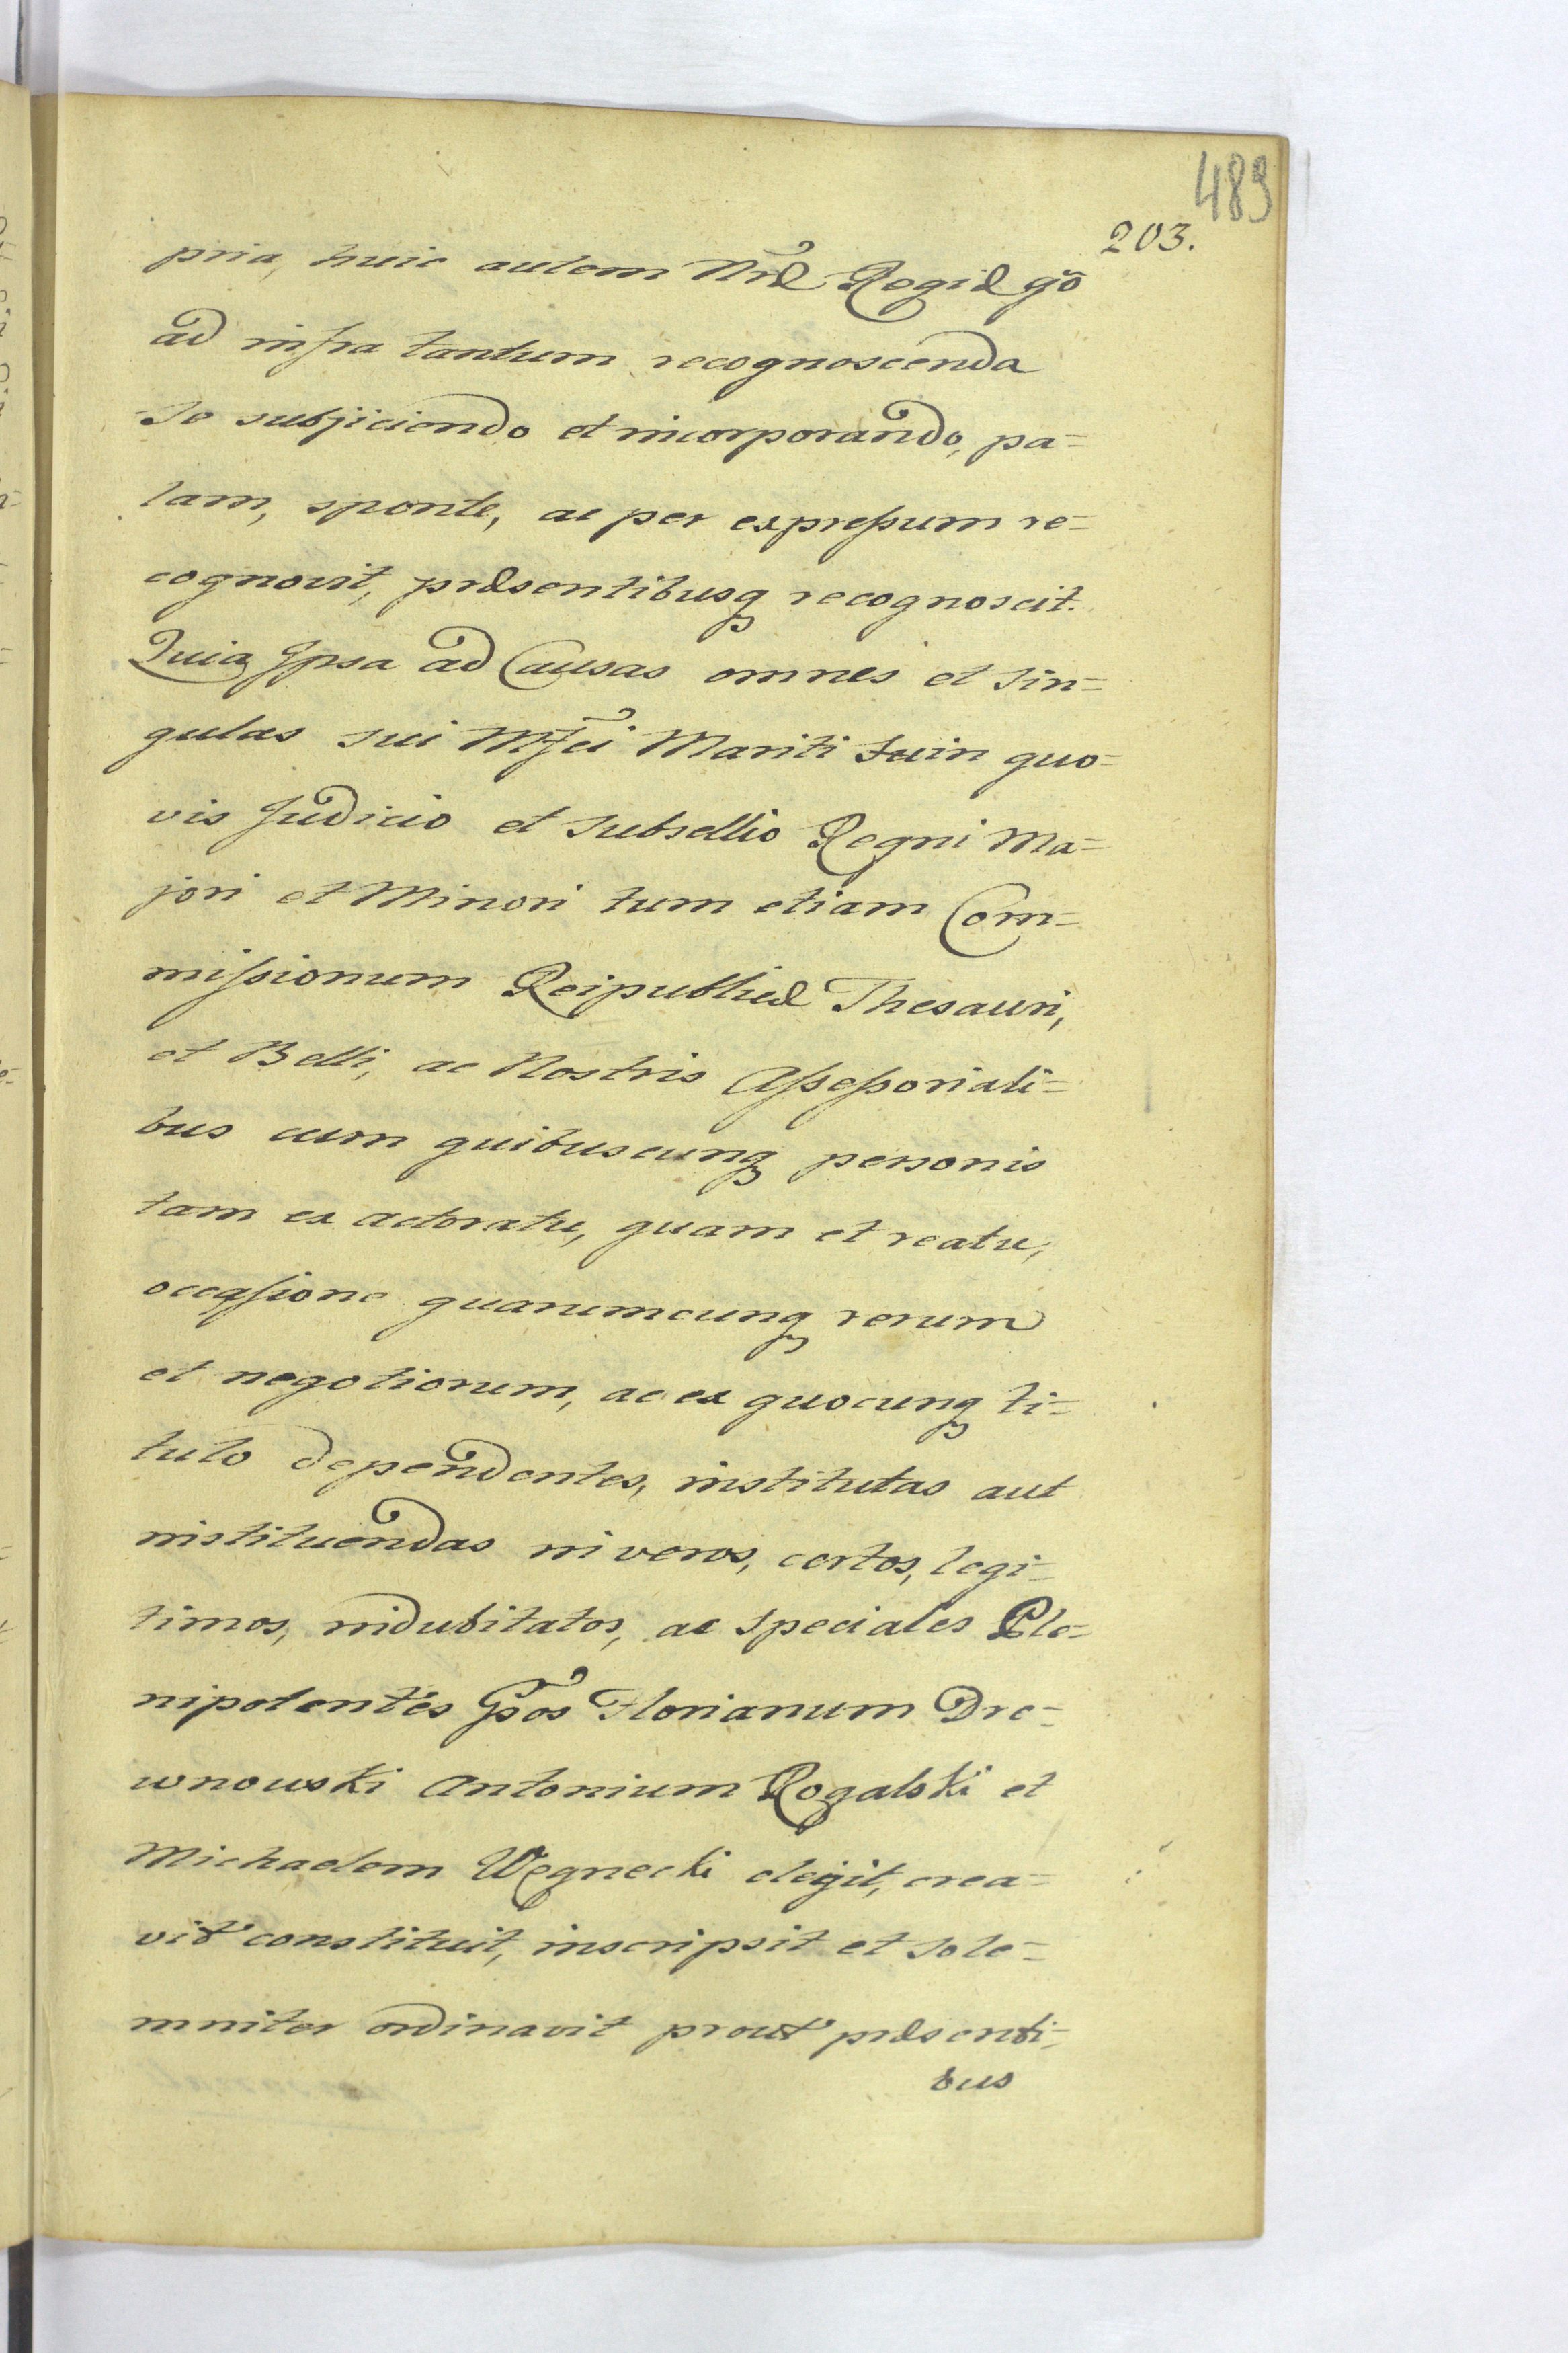 489
203.
pria, huic autem Nræ Regiæ gō
ad infra tantum recognoscenda
se subjiciendo et incorporando, pa=
lam, sponte, ac per expressum re=
cognovit, præsentibusq recognoscit.
Quia Ipsa ad Causas omnes et sin=
gulas sui Mfci Mariti suin quo=
vis Judicio et Subsellio Regni Ma=
jori et Minori tum etiam Com=
missionum Reipublicæ Thesauri,
et Belli, ac Nostris Assessoriali=
bus cum quibuscunq personis
tam ex actoratu, quam et reatu,
occasione quarumcunq rerum
et negotiorum, ac ex quocunq ti=
tulo dependentes, institutas aut
instituendas in veros, certos, legi=
timos, indubitatos, ac speciales Ple=
nipotentes Gsos Florianum Dre=
wnowski Antonium Rogalski et
Michaelem Wegnecki elegit, crea=
vit constituit, inscripsit et sole=
mniter ordinavit prout præsenti=
bus